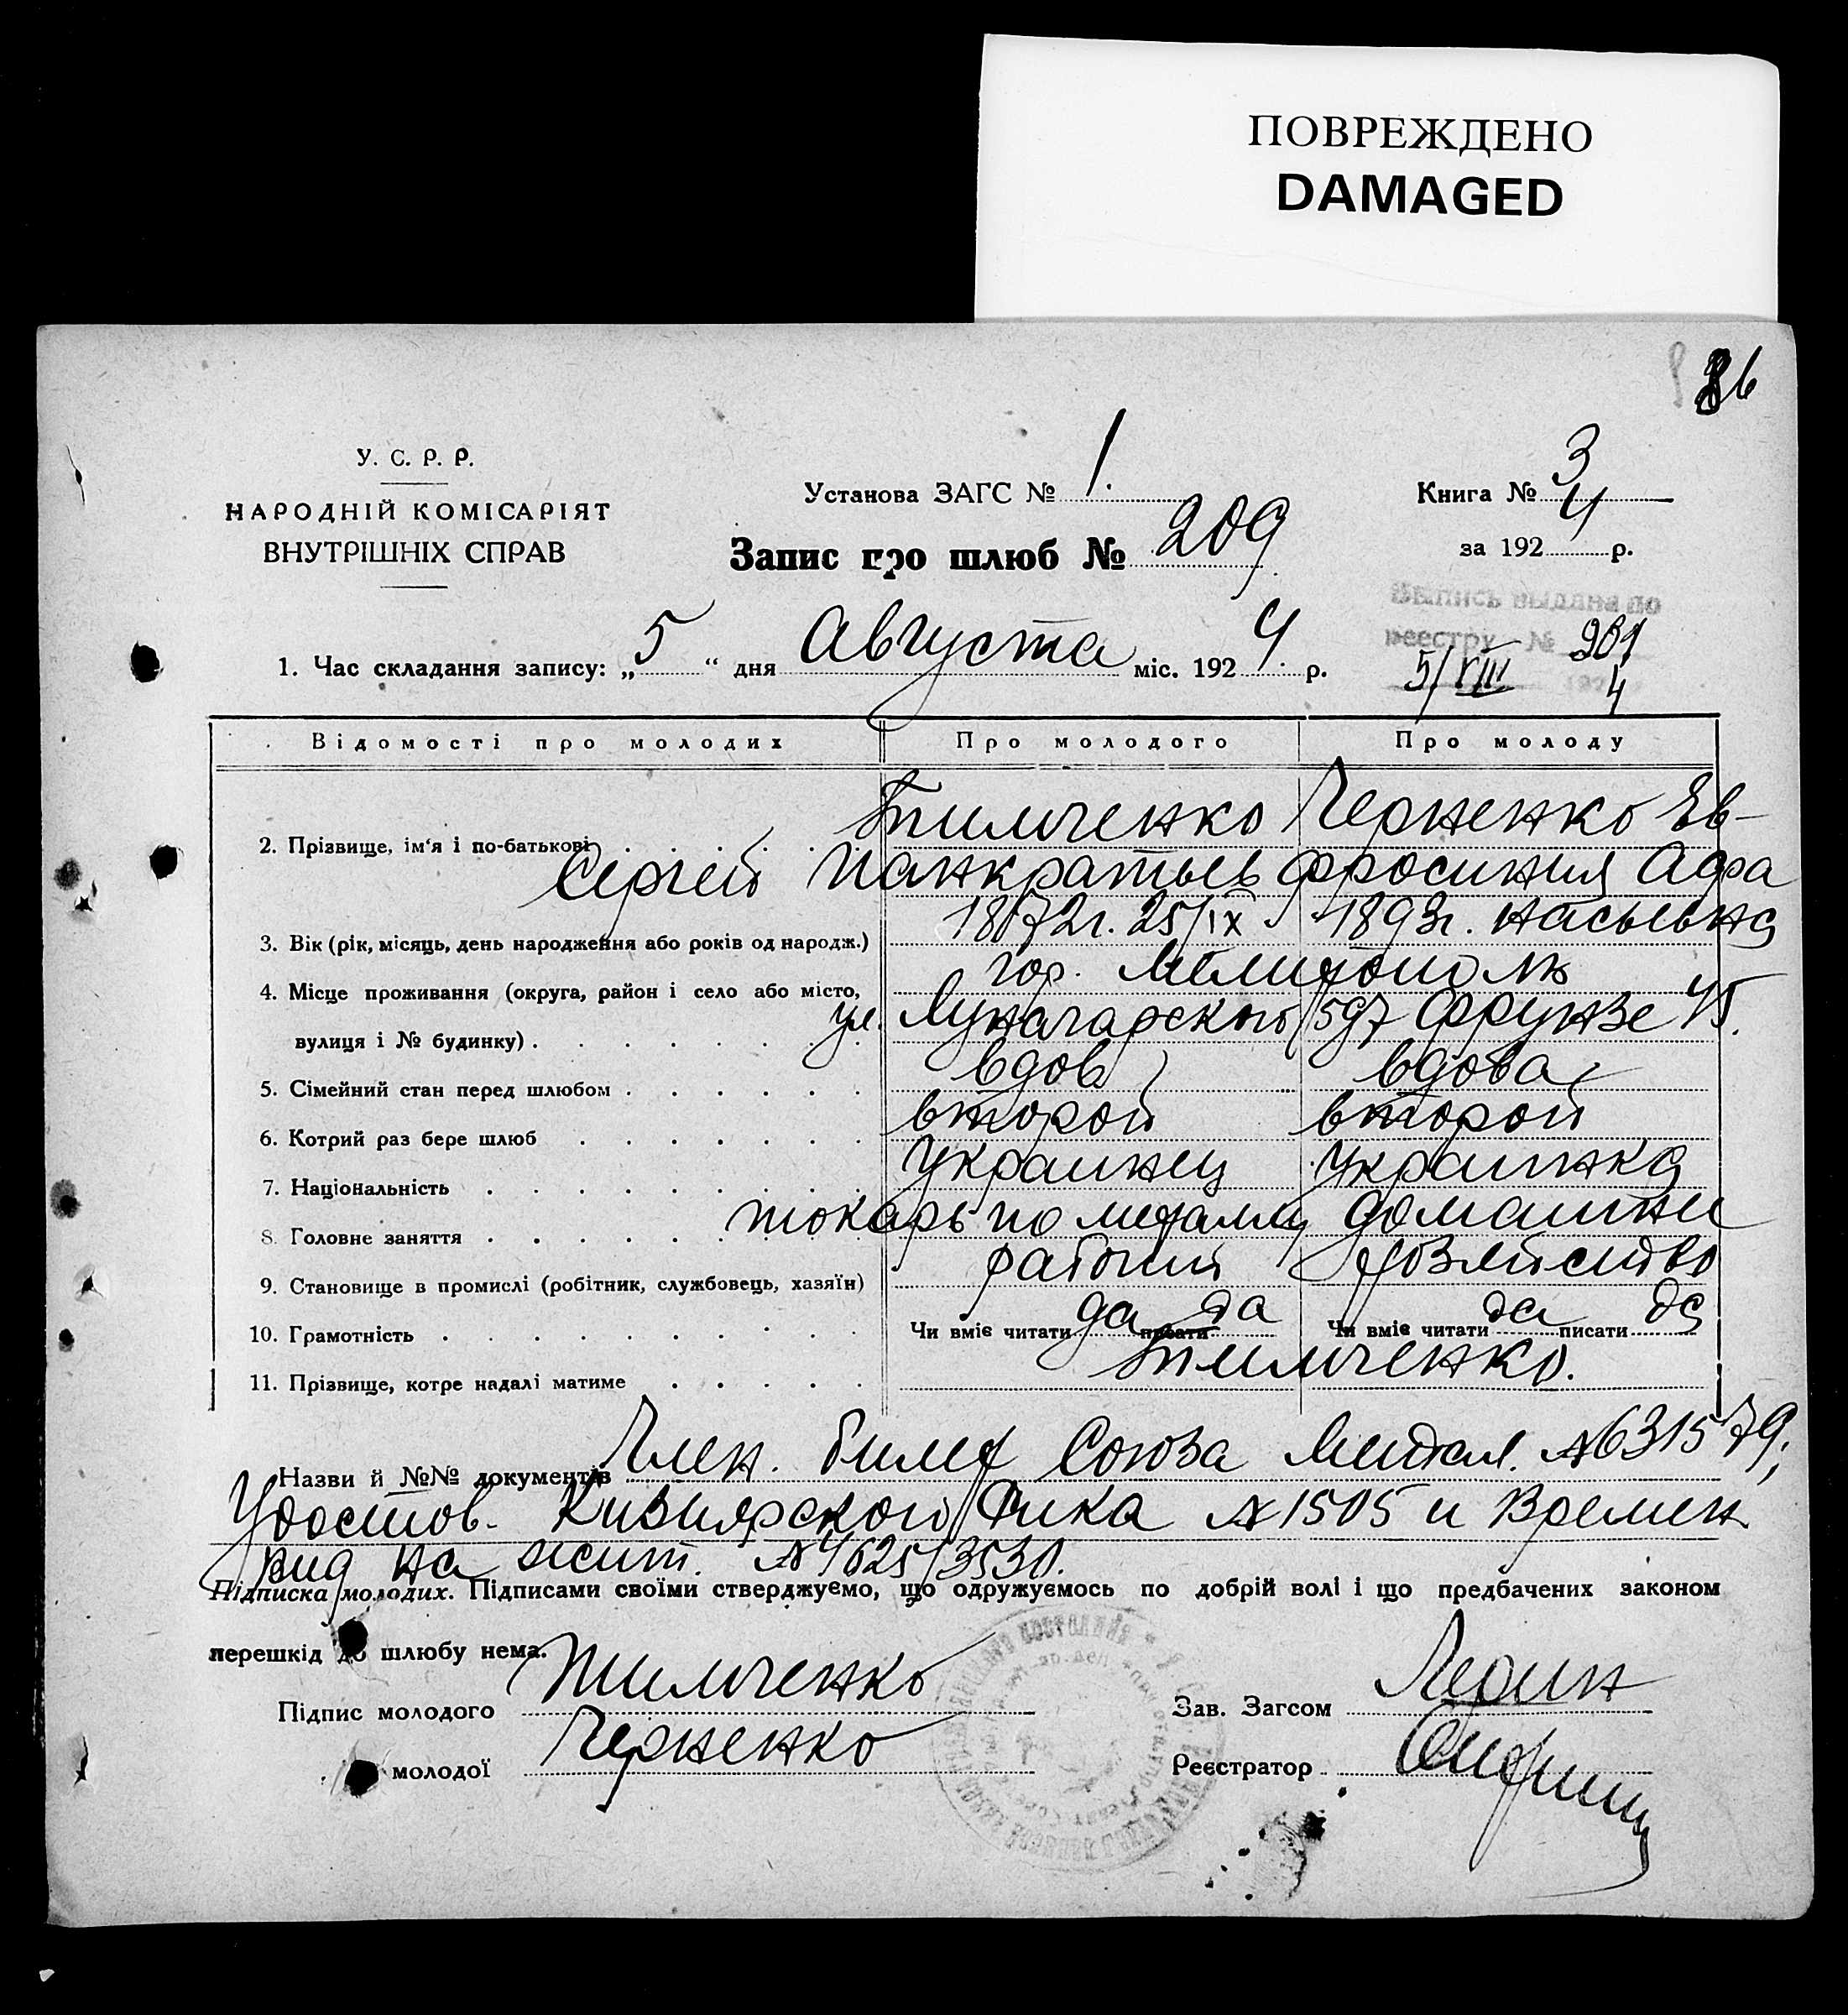 ПОВРЕЖДЕНО
DAMAGED
86
У. С. Р. Р.
НАРОДНІЙ КОМІСАРІЯТ
ВНУТРІШНІХ СПРАВ
Установа ЗАГС № 1.
Запис про шлюб № 209
Книга № 3
за 1924 р.
Выпись выдана по
реестру № 901
5/VIII 1924
1. Час складання запису: „5“ дня Августа міс. 1924. р.
Відомості про молодих Про молодого Про молоду
2. Прізвище, ім'я і по-батькові Тимченко Черненко Ев-
Сергей Панкратьев фросиния Афа
3. Вік (рік, місяць, день народження або років од народж.) 1872г. 25/IX 1893г. насьевна
4. Місце проживання (округа, район і село або місто, гор. Мелитополь
вулиця і № будинку) ул. Луначарского 597 Фрунзе 45.
5. Сімейний стан перед шлюбом вдов вдова
6. Котрий раз бере шлюб второй второй
7. Національність Украинец Украинка
8. Головне заняття токарь по металлу домашнее
9. Становище в промислі (робітник, службовець, хазяїн) рабочий хозяйство
10. Грамотність Чи вміє читати да писати да Чи вміє читати да писати да
11. Прізвище, котре надалі матиме Тимченко.
Назви й №№ документів Член. билет Союза Метал. №631579;
Удостов. Кизиярского Рика №1505 и Времен
вид на жит. №4625/3530.
Підписка молодих. Підписами своїми стверджуємо, що одружуємось по добрій волі і що предбачених законом
перешкід до шлюбу нема.
Підпис молодого Тимченко
Зав. Загсом
молодої Черненко
Реєстратор